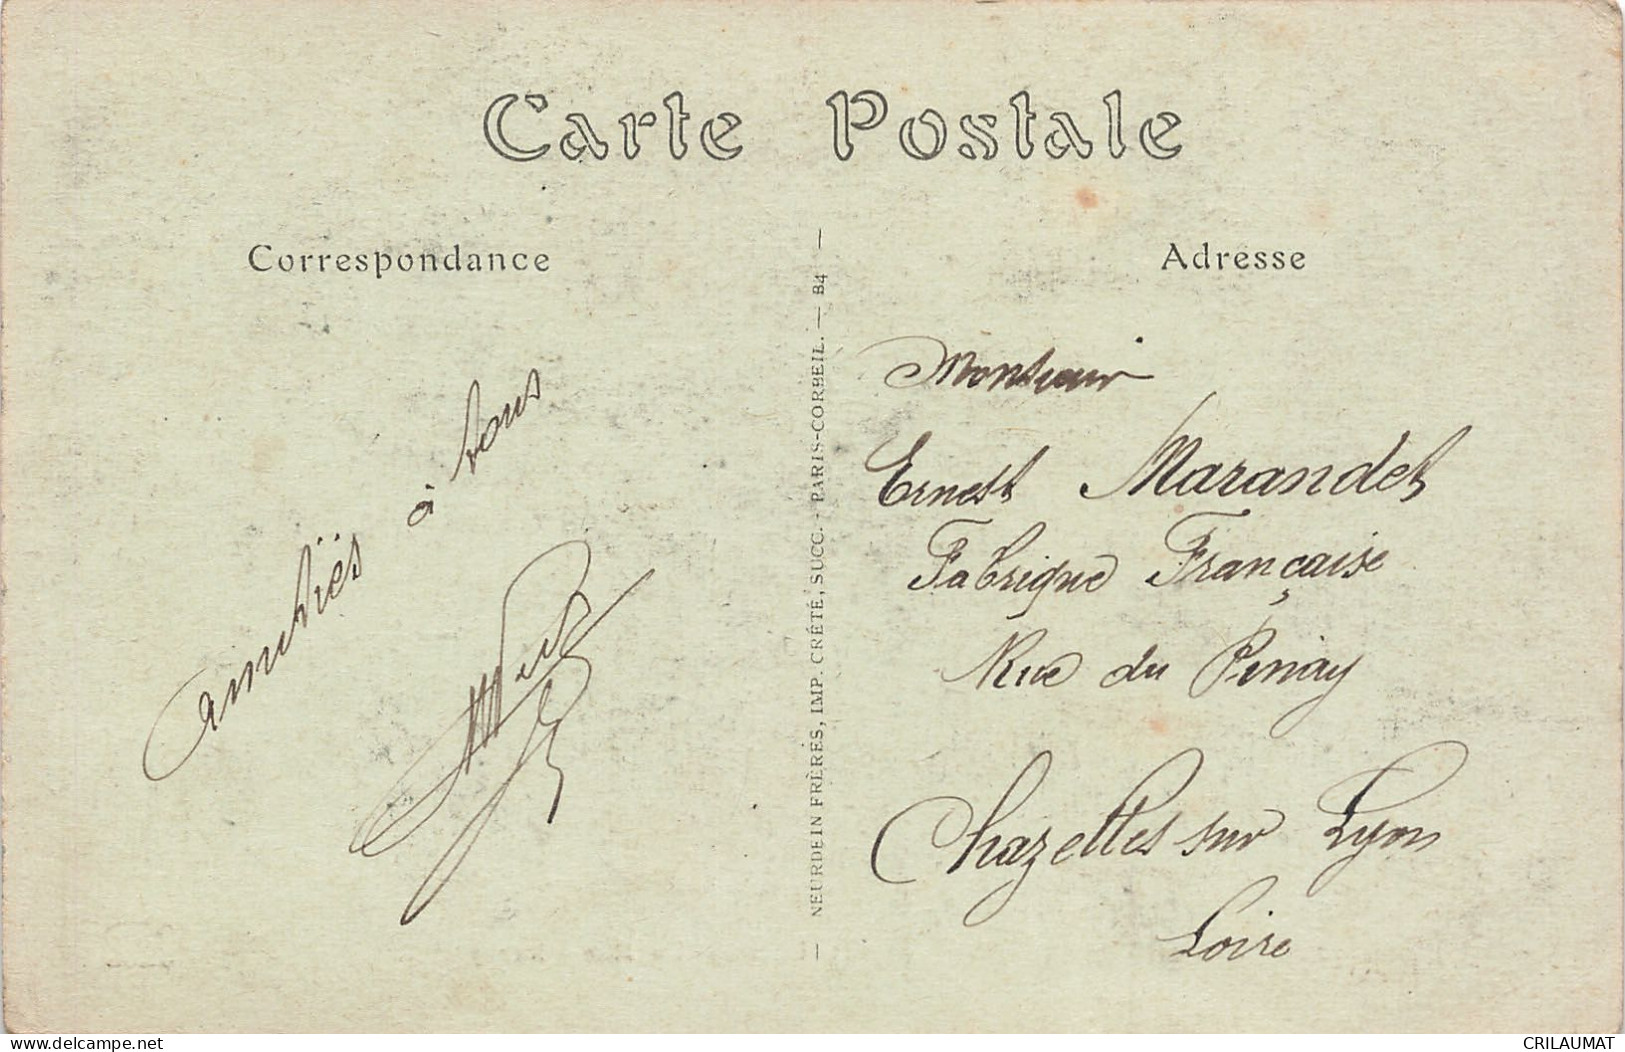 Carte Postale
Correspondance
Adresse
amitiés à tous
NEURDEIN FRÈRES, IMP. CRÉTÉ, SUCC. - PARIS-CORBEIL. — B4 —
Monsieur
Ernest Marandet
Fabrique Française
Rue du Pinay
Chazelles sur Lyon
Loire
www.delcampe.net
CRILAUMAT